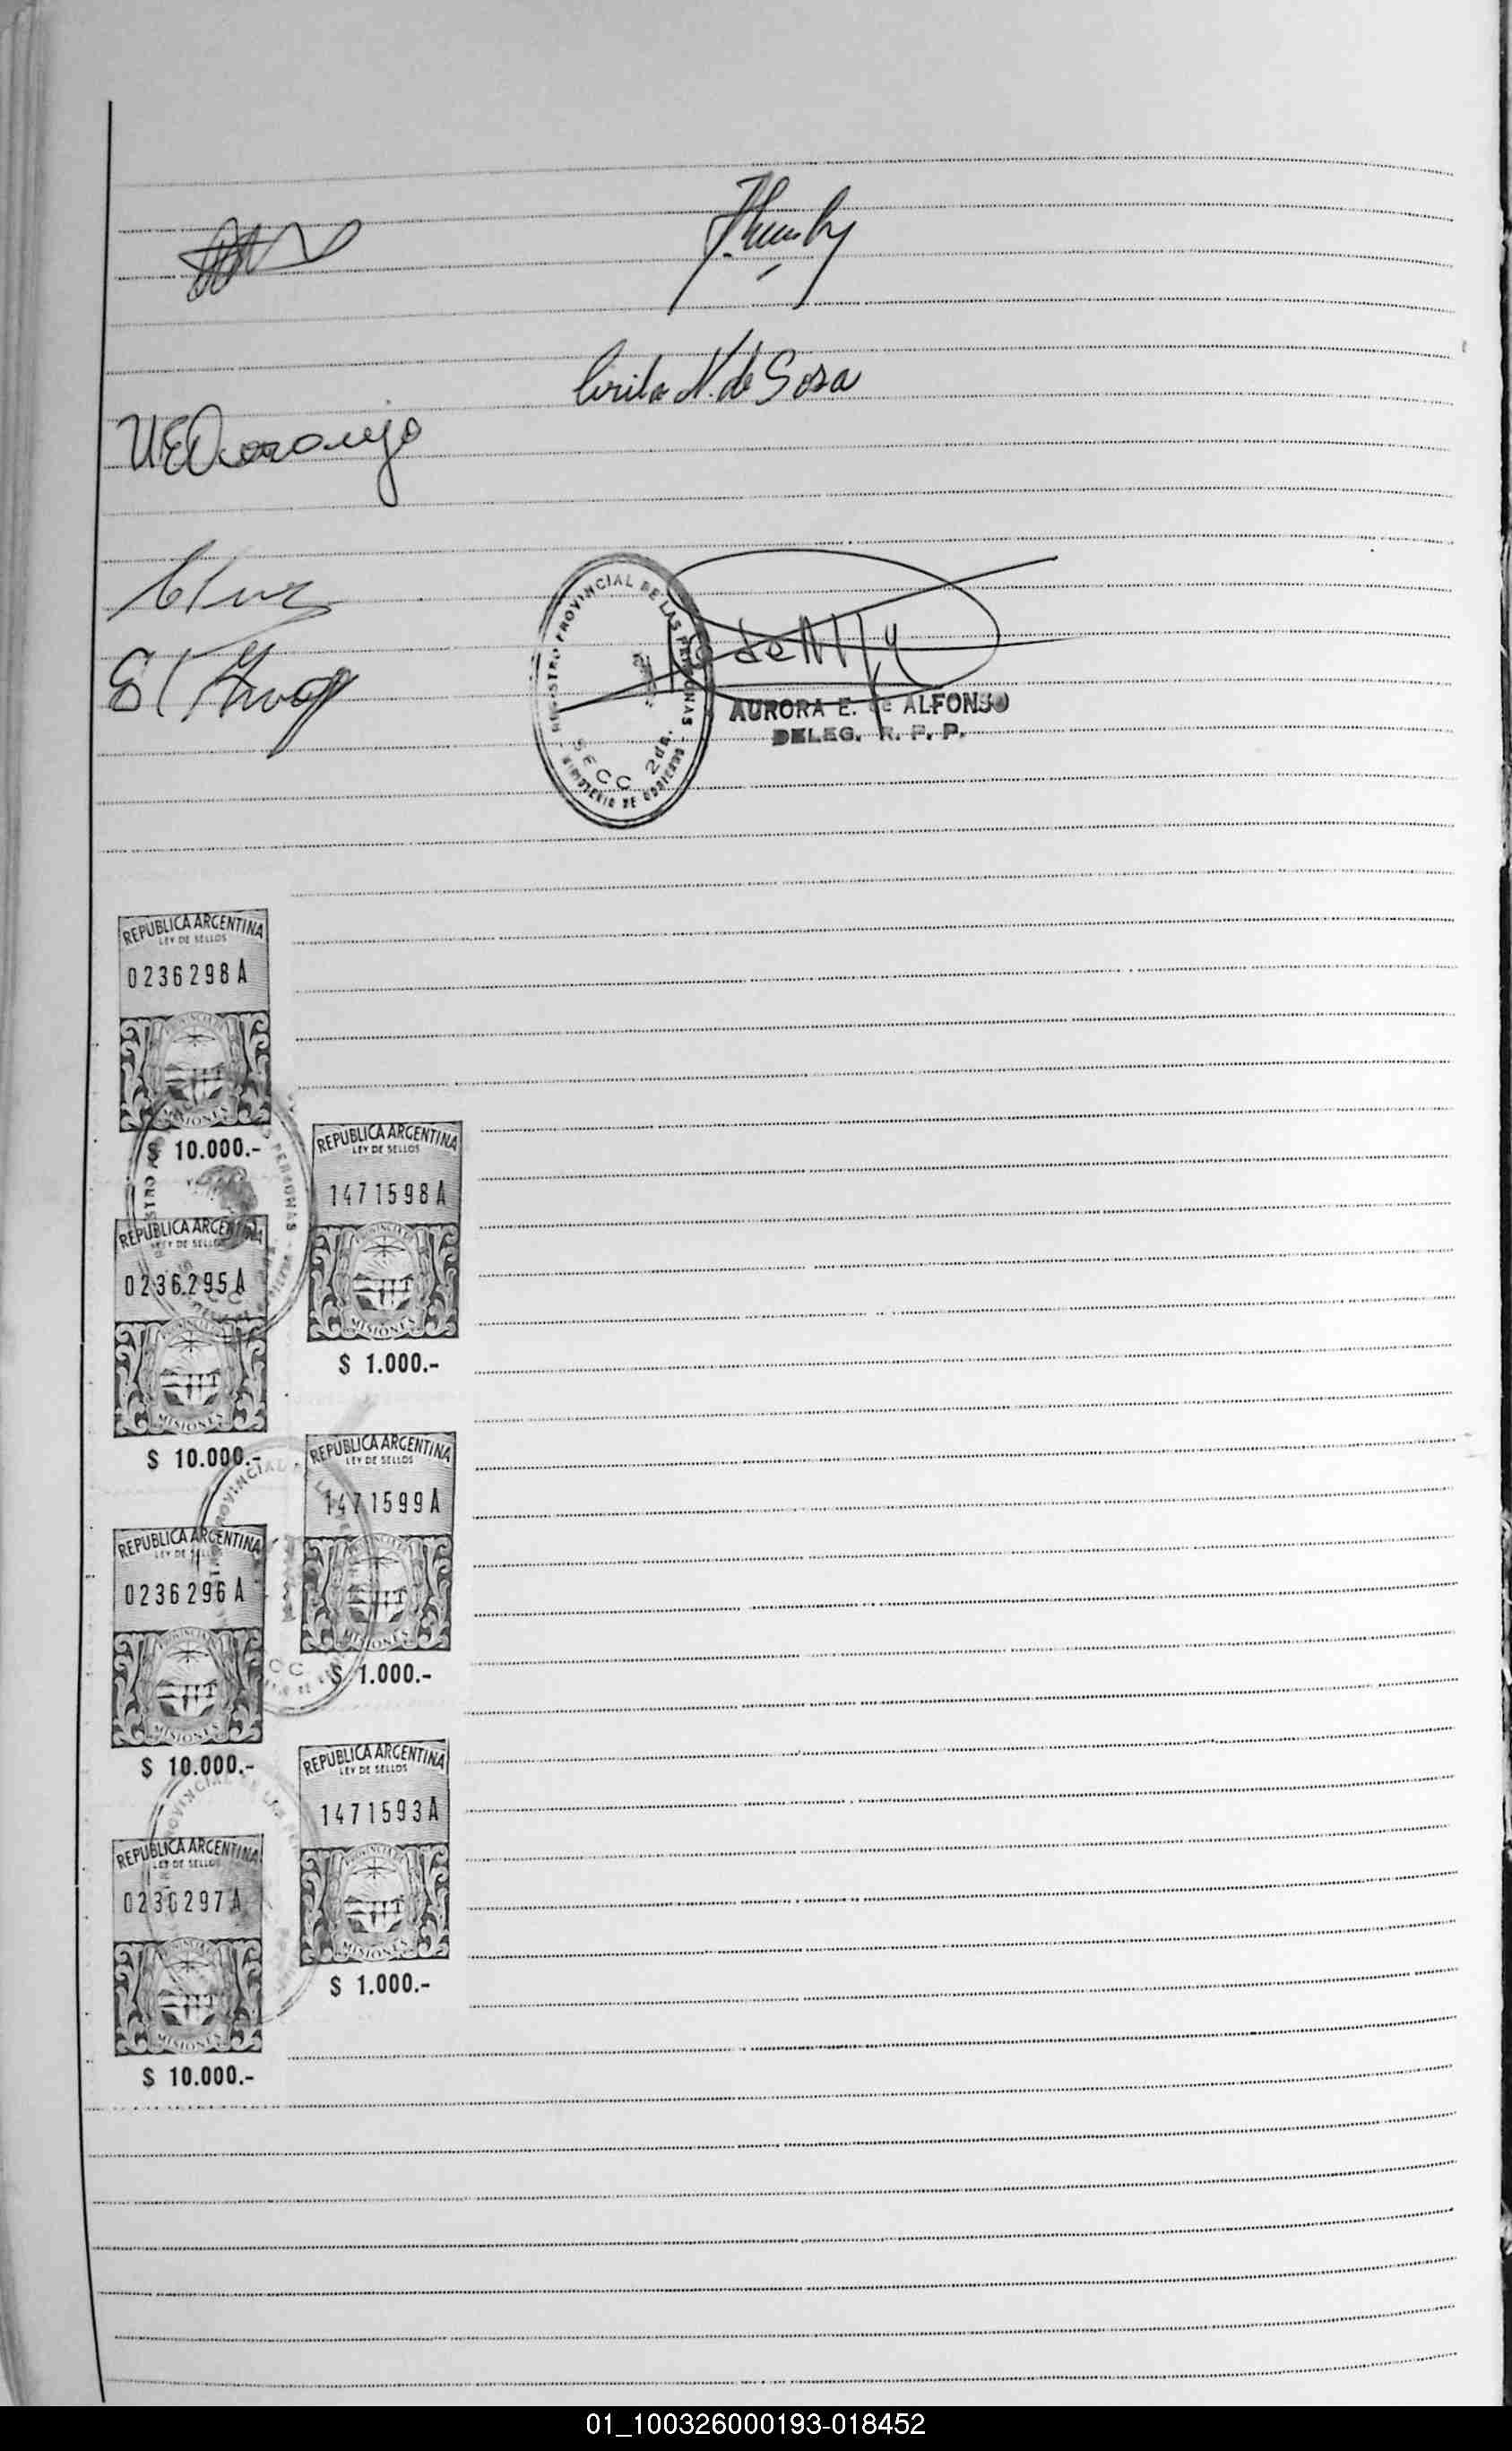 Cirila N. de Sosa
REGISTRO PROVINCIAL DE LAS PERSONAS
SECC 2da.
MINISTERIO DE GOBIERNO
AURORA E. de ALFONSO
DELEG. R. P. P.
REPUBLICA ARGENTINA
LEY DE SELLOS
0236298A
MISIONES
$ 10.000.-
REPUBLICA ARGENTINA
LEY DE SELLOS
1471598A
PROVINCIA DE
MISIONES
$ 1.000.-
REPUBLICA ARGENTINA
LEY DE SELLOS
0236295A
MISIONES
$ 10.000.-
REPUBLICA ARGENTINA
LEY DE SELLOS
1471599A
MISIONES
$ 1.000.-
REPUBLICA ARGENTINA
LEY DE SELLOS
0236296A
MISIONES
$ 10.000.-
REPUBLICA ARGENTINA
LEY DE SELLOS
1471593A
MISIONES
$ 1.000.-
REPUBLICA ARGENTINA
LEY DE SELLOS
0236297A
MISIONES
$ 10.000.-
01_100326000193-018452